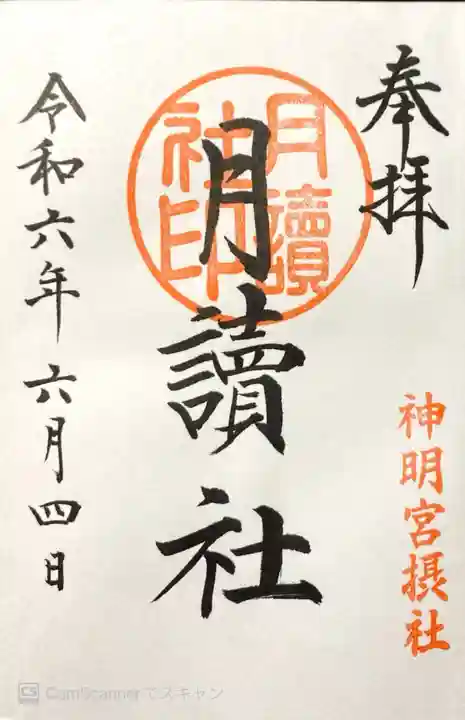 奉拝
神明宮摂社
月讀神印
月讀社
令和六年六月四日
CS CamScannerでスキャン